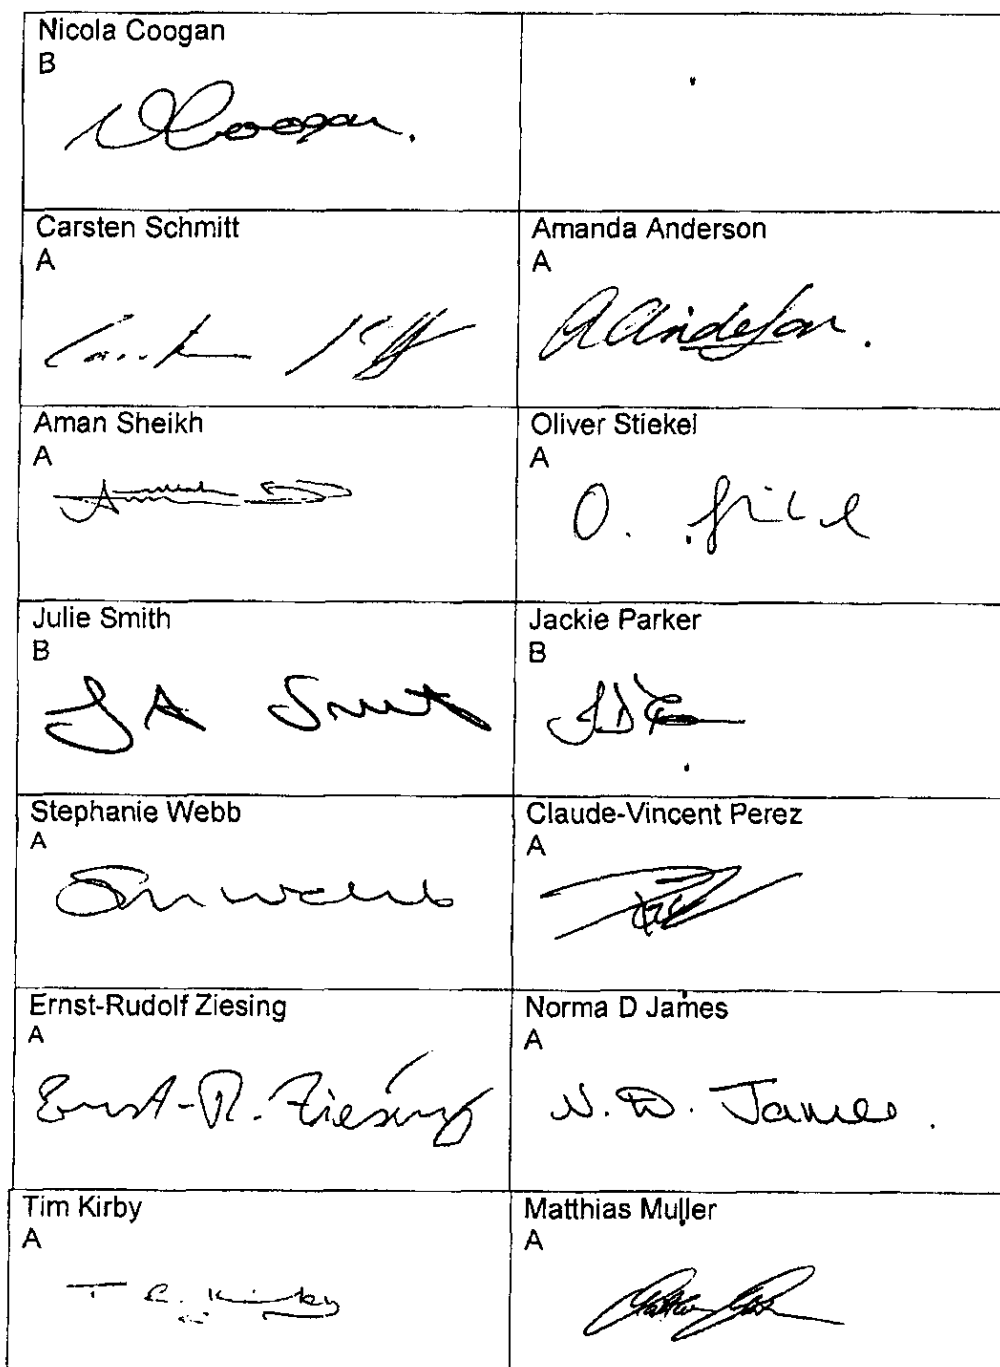 Nicola Coogan
B
N Coogan.
Carsten Schmitt
A
Amanda Anderson
A
A Anderson.
Aman Sheikh
A
Oliver Stiekel
A
O. Stiekel
Julie Smith
B
J A Smith
Jackie Parker
B
Stephanie Webb
A
Claude-Vincent Perez
A
Ernst-Rudolf Ziesing
A
Ernst-R. Ziesing
Norma D James
A
N. D. James.
Tim Kirby
A
T C. Kirby
Matthias Muller
A